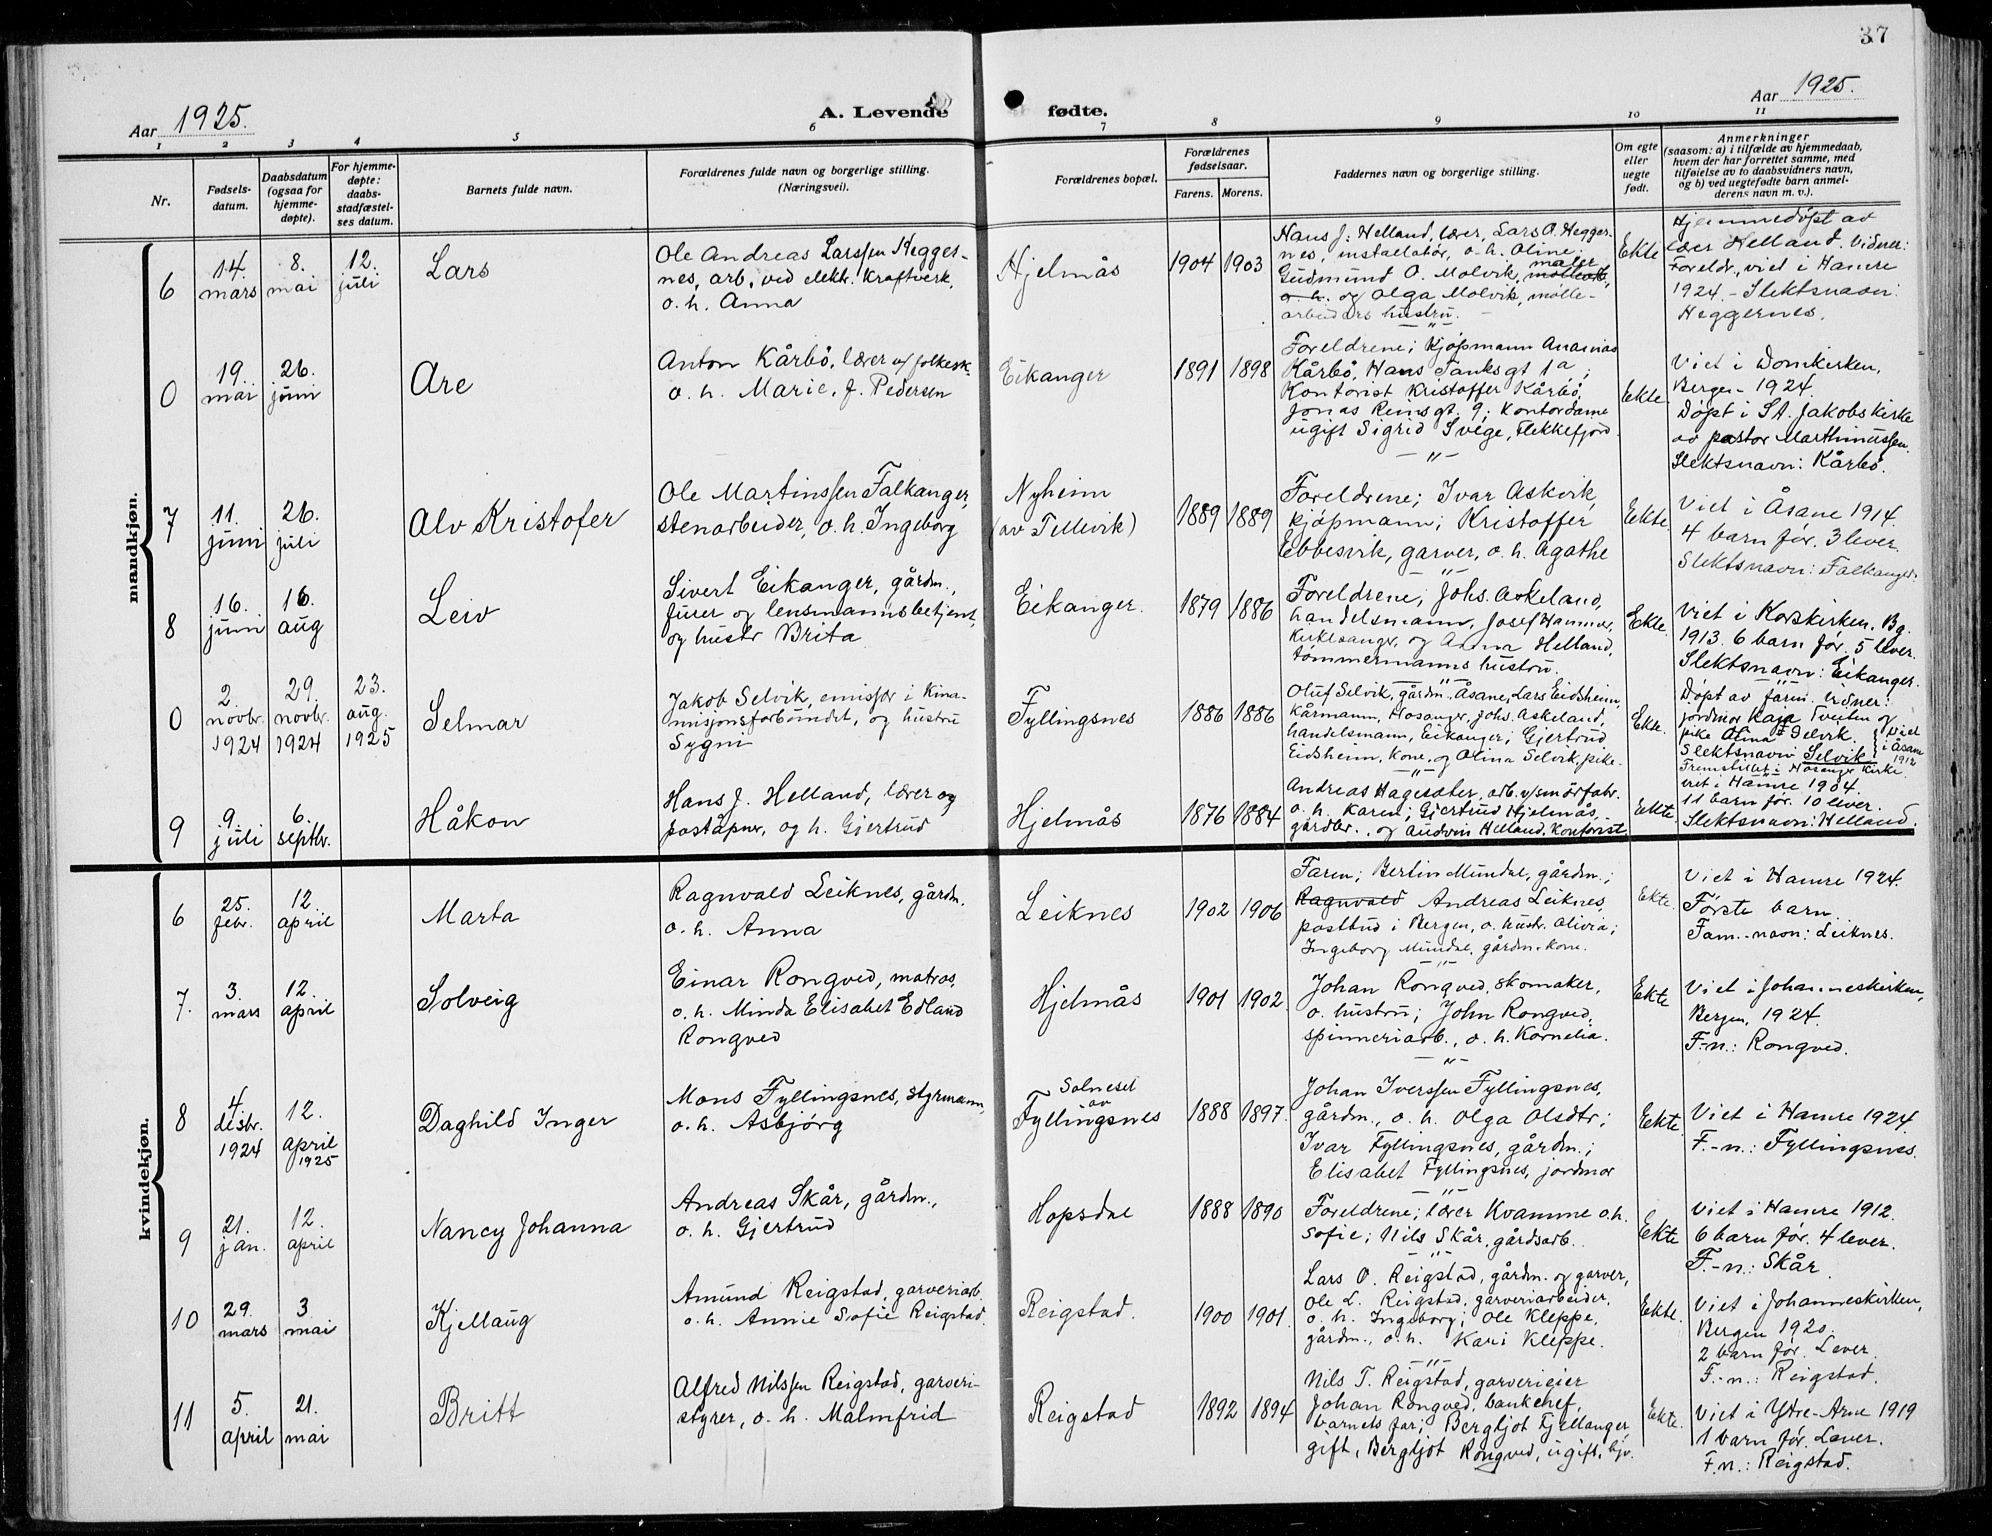 37
Aar 1925.
A. Levende fødte.
Aar 1925.
1 2 3 4 5 6 7 8 9 10 11
Nr.
Fødsels-
datum.
Daabsdatum
(ogsaa for
hjemme-
døpte).
For hjemme-
døpte:
daabs-
stadfæstel-
ses datum.
Barnets fulde navn.
Forældrenes fulde navn og borgerlige stilling.
(Næringsvei).
Forældrenes bopæl.
Forældrenes
fødselsaar.
Farens. Morens.
Faddernes navn og borgerlige stilling.
Om egte
eller
uegte
født.
Anmerkninger
(saasom: a) i tilfælde av hjemmedaab,
hvem der har forrettet samme, med
tilføielse av to daabsvidners navn,
og b) ved uegtefødte barn anmel-
derens navn m. v.).
mandkjøn.
6
14.
mars
8.
mai
12.
juli
Lars
Ole Andreas Larssen Hegges-
nes, arb. ved elektr. Kraftverk,
o. h. Anna
Hjelmås
1904 1903
Hans J. Helland, lærer, Lars O. Hegger-
nes, installatør, o. h. Oline;
Gudmund O. Molvik, maler
o. h. og Olga Molvik, mølle-
arbeiders hustru.
Ekte
Hjemmedøpt av
lær Helland. Vidner:
Foreldr., viet i Hamre
1924. - Slektsnavn:
Heggernes.
0
19.
mai
26.
juni
Are
Anton Kårbø, lærer v/ folkesk.
o. h. Marie, f. Pedersen
Eikanger
1891 1898
Foreldrene; Kjøpmann Ananias
Kårbø, Hans Tanksgt 1a;
Kontorist Kristoffer Kårbø,
Jonas Reinsgt. 9; Kontordame
ugift Sigrid Svege, Flekkefjord
Ekte
Viet i Domkirken,
Bergen - 1924.
Døpt i St. Jakobs kirke
av pastor Marthinussen.
Slektsnavn: Kårbø.
7
11.
juni
26.
juli
Alv Kristofer
Ole Martinssen Falkanger,
stenarbeider, o. h. Ingeborg
Nyheim
(av Tellevik)
1889 1889
Foreldrene; Ivar Askvik,
kjøpmann; Kristoffer
Ebbesvik, garver, o. h. Agathe
Ekte.
Viet i Åsane 1914.
4 barn før. 3 lever.
Slektsnavn: Falkanger.
8
16.
juni
16.
aug
Leiv
Sivert Eikanger, gårdm.,
furer og lensmannsbetjent,
og hustr Brita
Eikanger.
1879 1886
Foreldrene; Johs. Askeland,
handelsmann, Josef Hammer,
Kirkesanger, og Anna Helland,
tømmermanns hustru.
Ekte.
Viet i Korskirken, Bg.
1913. 6 barn før. 5 lever.
Slektsnavn: Eikanger.
0
2.
novbr.
1924
29.
novbr.
1924
23.
aug.
1925
Selmar
Jakob Selvik, emissær i Kina-
misjonsforbundet, og hustru
Sygni
Fyllingsnes
1886 1886
Oluf Selvik, gårdm. Åsane, Lars Eidsheim,
Kårmann, Hosanger, Johs. Askeland,
handelsmann, Eikanger; Gjertrud
Eidsheim, Kone, og Olina Selvik, pike.
Ekte.
Døpt av faren. Vidner:
jordmor Kaja Tveiten og
pike Olina Selvik.
viet
i Åsane
1912
Slektsnavn Selvik
Fremstillet i Hosanger Kirke.
9
9.
juli
6.
septbr.
Håkon
Hans J. Helland, lærer og
poståpner, og h. Gjertrud
Hjelmås
1876 1884
Andreas Hagesæter, arb. v/smørfabr.
o. h. Karen; Gjertrud Hjelmås
gårdbr., og Audvin Helland, Kontorist
Ekte
viet i Hamre 1904.
11 barn før. 10 lever.
Slektsnavn: Helland.
kvindekjøn.
6
25.
febr.
12.
april
Marta
Ragnvald Leiknes, gårdm.
o. h. Anna
Leiknes
1902 1906
Faren; Bertin Mundal, gårdm.;
Ragnvald Andreas Leiknes,
postbud i Bergen, o. hustr. Olivia;
Ingeborg Mundal, gårdm. kone.
Ekte.
Viet i Hamre 1924.
Første barn.
Fam.-navn: Leiknes.
7.
3.
mars
12.
april
Solveig
Einar Rongved, matros,
o. h. Minda Elisabet Edland
Rongved
Hjelmås
1901 1902
Johan Rongved, skomaker,
o. hustru; John Rongved,
spinneriarb., o. h. Kornelia.
Ekte
Viet i Johanneskirken,
Bergen, 1924.
F.-n.: Rongved.
8
4
desbr.
1924
12.
april
1925
Daghild Inger
Mons Fyllingsnes, styrmann,
o. h. Asbjørg
Solnesel
av
Fyllingsnes
1888 1897.
Johan Iverssen Fyllingsnes,
gårdm., o. h. Olga Olsdtr;
Ivar Fyllingsnes, gårdm.;
Elisabet Fyllingsnes, jordmor
Ekte.
Viet i Hamre 1924.
F.-n.: Fyllingsnes.
9
21.
jan.
12.
april
Nancy Johanna
Andreas Skår, gårdm.,
o. h. Gjertrud
Hopsdal
1888 1890
Foreldrene; lærer Kvamme o. h.
Sofie; Nils Skår, gårdsarb.
Ekte
Viet i Hamre 1912.
6 barn før. 4 lever.
F.-n.: Skår.
10
29.
mars
3
mai
Kjellaug
Amund Reigstad, garveriarb.
o. h. Annie Sofie Reigstad.
Reigstad.
1900 1901.
Lars O. Reigstad, gårdm. og garver,
Ole L. Reigstad, garveriarbeider,
o. h. Ingeborg; Ole Kleppe,
gårdm., o. h. Kari Kleppe.
Ekte.
Viet i Johanneskirken,
Bergen 1920.
2 barn før. Lever.
F.-n.: Reigstad.
11
5.
april
21.
mai
Britt
Alfred Nilssen Reigstad, garveri-
styrer, o. h. Malmfrid
Reigstad
1892 1894
Nils T. Reigstad, garverieier
Johan Rongved, bankchef,
barnets far; Bergljot Fjellanger
gift, Bergljot Rongved, ugift, hjv.
Ekte.
Viet i Ytre-Arne 1919
1 barn før. Lever.
F.n.: Reigstad.